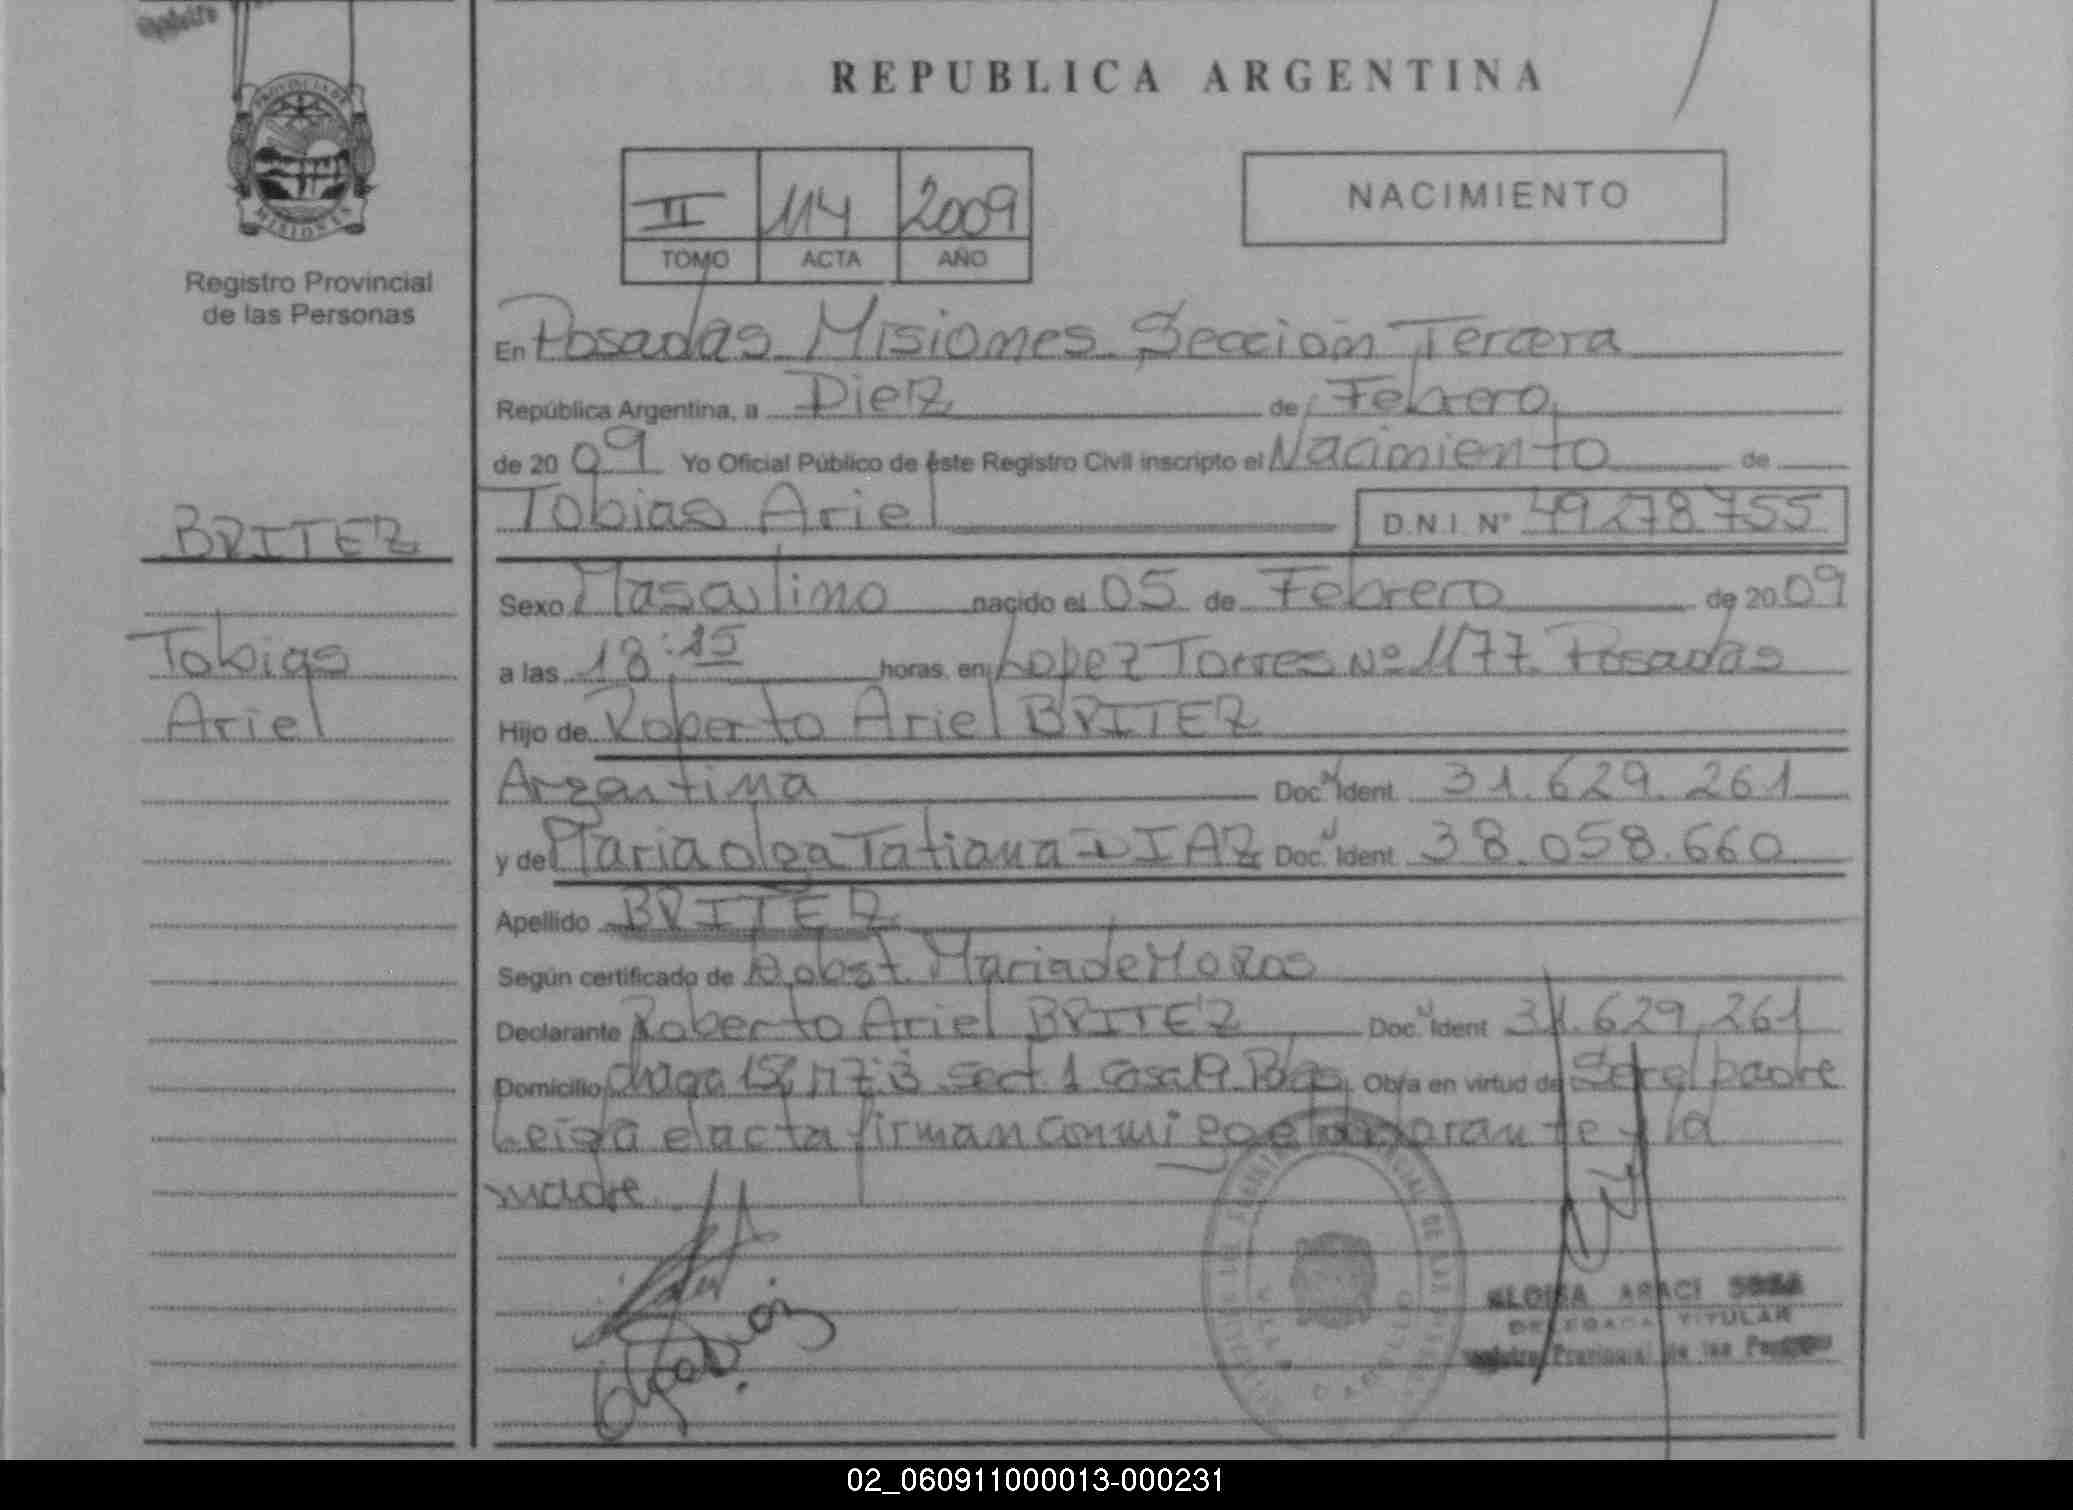 PROVINCIA DE
MISIONES
Registro Provincial
de las Personas
BRITEZ
Tobias
Ariel
REPUBLICA ARGENTINA
II 114 2009
TOMO ACTA AÑO
NACIMIENTO
En Posadas Misiones Sección Tercera
República Argentina, a Diez de Febrero
de 2009 Yo Oficial Público de éste Registro Civil inscripto el Nacimiento de
Tobias Ariel D.N.I. Nº 49278755
Sexo Masculino nacido el 05 de Febrero de 2009
a las 18:15 horas, en Lopez Torres Nº 1177 Posadas
Hijo de Roberto Ariel BRITEZ
Argentina Doc. Ident. 31.629.261
y de Maria olga Tatiana DIAZ Doc. Ident 38.058.660
Apellido BRITEZ
Según certificado de obst. Maria de Mozos
Declarante Roberto Ariel BRITEZ Doc. Ident 31.629.261
Domicilio chaga 158 mz 3 sect 1 casa 19 Pdas Obra en virtud de Ser el padre
Leida el acta firman conmigo el declarante y la
madre
Olga Diaz
ARACI SOSA
DELEGADA TITULAR
Registro Provincial de las Personas
02_060911000013-000231